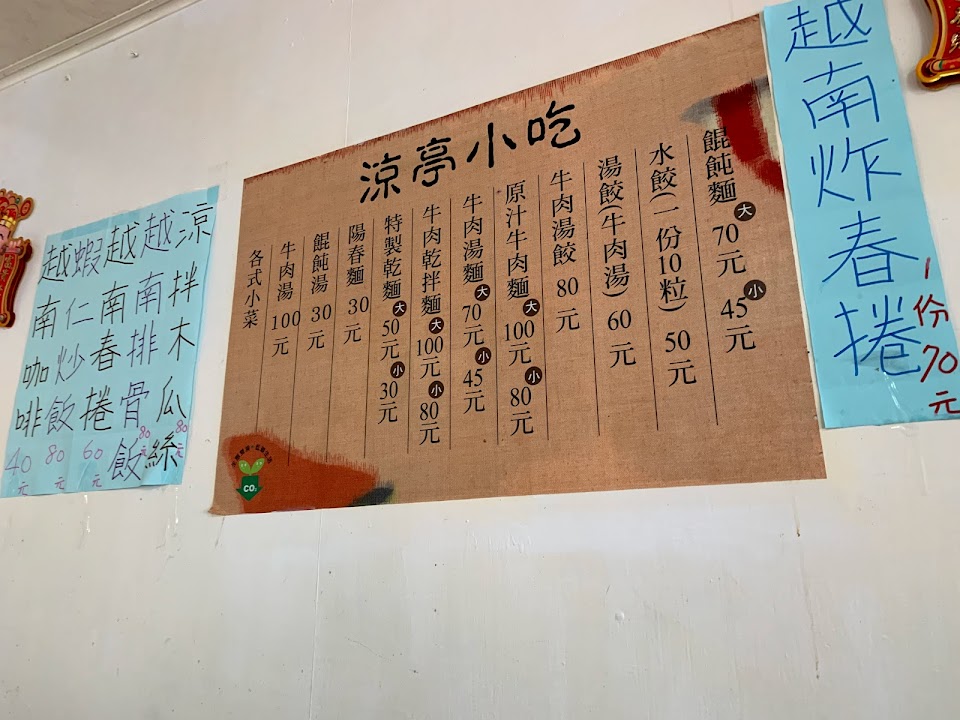 越南炸春捲
1份70元
涼亭小吃
餛飩麵 大 70元 小 45元
水餃(一份10粒) 50元
湯餃(牛肉湯) 60元
牛肉湯餃 80元
原汁牛肉麵 大 100元 小 80元
牛肉湯麵 大 70元 小 45元
牛肉乾拌麵 大 100元 小 80元
特製乾麵 大 50元 小 30元
陽春麵 30元
餛飩湯 30元
牛肉湯 100元
各式小菜
CO₂
涼拌木瓜絲 80元
越南排骨飯 80元
越南春捲 60元
蝦仁炒飯 80元
越南咖啡 40元